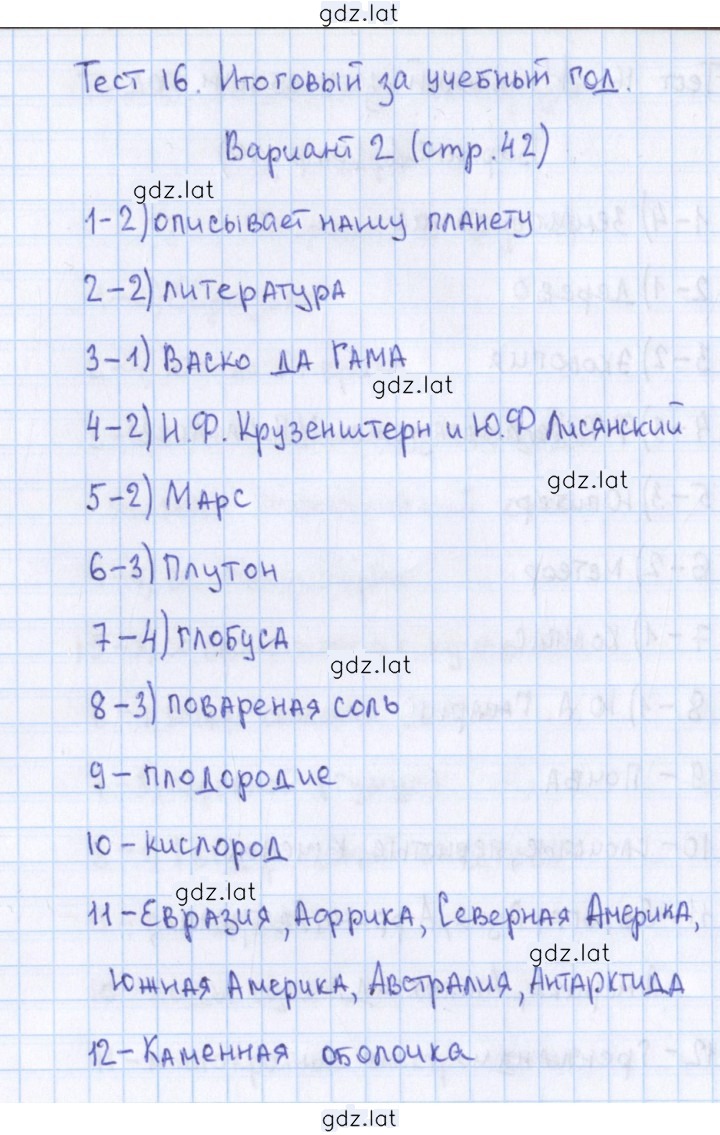 gdz.lat
Тест 16. Итоговый за учебный год.
Вариант 2 (стр.42)
gdz.lat
1-2) описывает нашу планету
2-2) литература
3-1) Васко да Гама
gdz.lat
4-2) И.Ф. Крузенштерн и Ю.Ф Лисянский
gdz.lat
5-2) Марс
6-3) Плутон
7-4) глобуса
gdz.lat
8-3) повареная соль
9- плодородие
10-кислород
gdz.lat
11-Евразия, Африка, Северная Америка,
gdz.lat
Южная Америка, Австралия, Антарктида
12-Каменная оболочка
gdz.lat